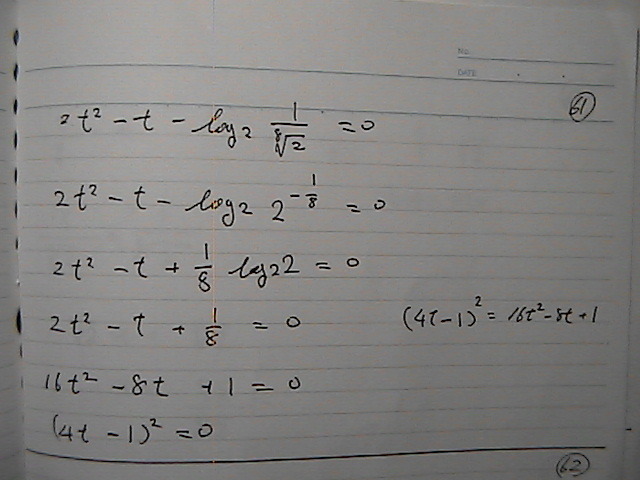 No.
DATE . .
61
2t² - t - log₂ 1/⁸√2 = 0
2t² - t - log₂ 2^(-1/8) = 0
2t² - t + 1/8 log₂2 = 0
2t² - t + 1/8 = 0 (4t-1)² = 16t²-8t+1
16t² - 8t + 1 = 0
(4t - 1)² = 0
62